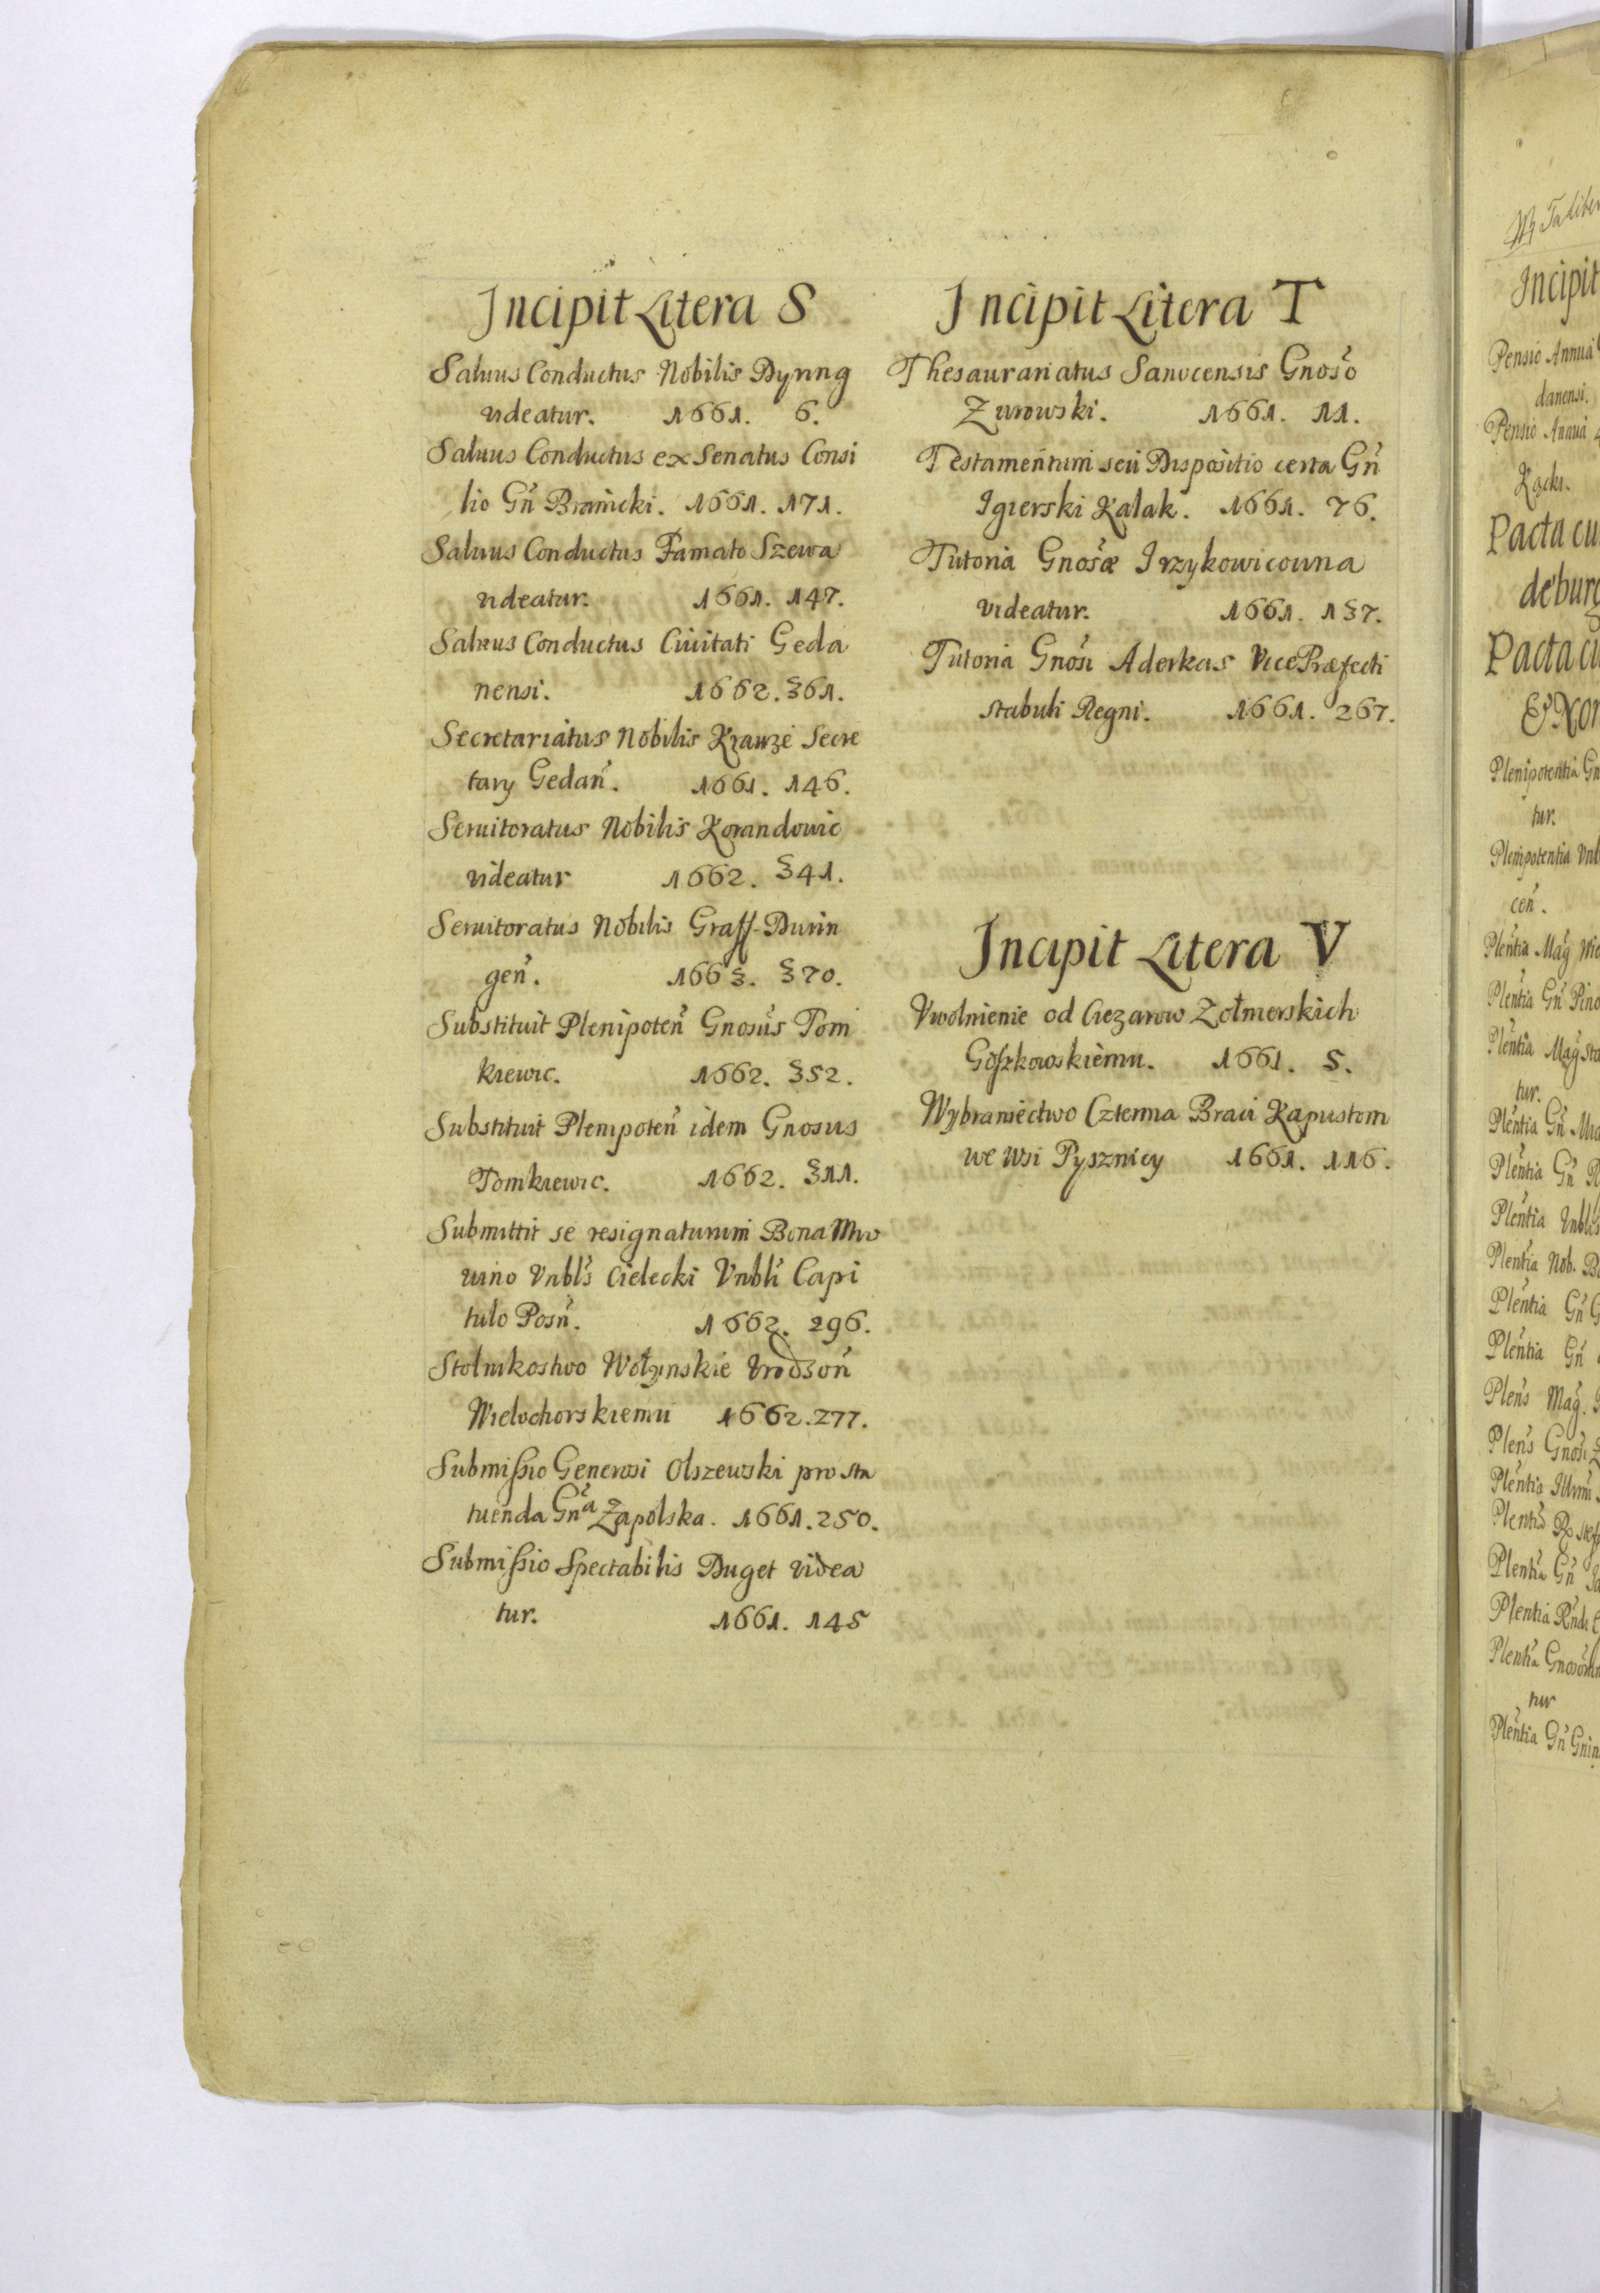 Incipit Litera S
Saluus Conductus Nobilis Dynng
uideatur. 1661. 6.
Saluus Conductus ex Senatus Consi
lio Gn̄ Branicki. 1661. 171.
Saluus Conductus Famato Szewa
uideatur. 1661. 147.
Saluus Conductus Ciuitati Geda
nensi. 1662. 361.
Secretariatus Nobilis Krauze Secre
tary Gedan̄. 1661. 146.
Seruitoratus Nobilis Korandowic
uideatur 1662. 341.
Seruitoratus Nobilis Graff Durin
gen̄. 1663. 370.
Substituit Plenipoten̄ Gnosūs Tom
kiewic. 1662. 352.
Substituit Plenipoten̄ idem Gnosus
Tomkiewic. 1662. 311.
Submittit se resignaturum Bona Mro
uino Vnbl̄s Cielecki Vnbl̄i Capi
tulo Posn̄. 1662. 296.
Stolnikostwo Wołynskie Vrodzon̄
Wielochorskiemu 1662. 277.
Submissio Generosi Olszewski pro sta
tuenda Gn̄a Zapolska. 1661. 250.
Submissio Spectabilis Duget videa
tur. 1661. 145
Incipit Litera T
Thesaurariatus Sanocensis Gnos̄o
Zurowski. 1661. 11.
Testamentum seu Dispositio certa Gn̄
Igierski Kalak. 1661. 76.
Tutoria Gnos̄æ Irzykowicouna
videatur. 1661. 137.
Tutoria Gnos̄i Aderkas Vice Præfecti
stabuli Regni. 1661. 267.
Incipit Litera V
Vwolnienie od Ciezarow Zołnierskich
Goszkowskiemu. 1661. 5.
Wybraniectwo Czterma Braci Kapustom
we Wsi Pysznicy 1661. 116.
Incipit
Pensio Annua
danensi.
Pensio Annua
Kącki.
Pacta cu
deburg
Pacta cu
Plenipotentia Gn
tur.
Plenipotentia Vnb
cen̄.
Plen̄tia Mag̃
Plen̄tia Gn̄ Pino
Plen̄tia Mag̃ Sta
tur.
Plen̄tia Gn̄
Plen̄tia Gn̄
Plen̄tia Vnbl
Plen̄tia Nob.
Plen̄tia Gn̄
Plen̄tia Gn̄
Plen̄s Mag̃.
Plen̄s Gnos̄i
Plen̄tia
Plen̄tia
Plen̄tia Gn̄
Plen̄tia
Plen̄tia
tur
Plen̄tia Gn̄ Gnin